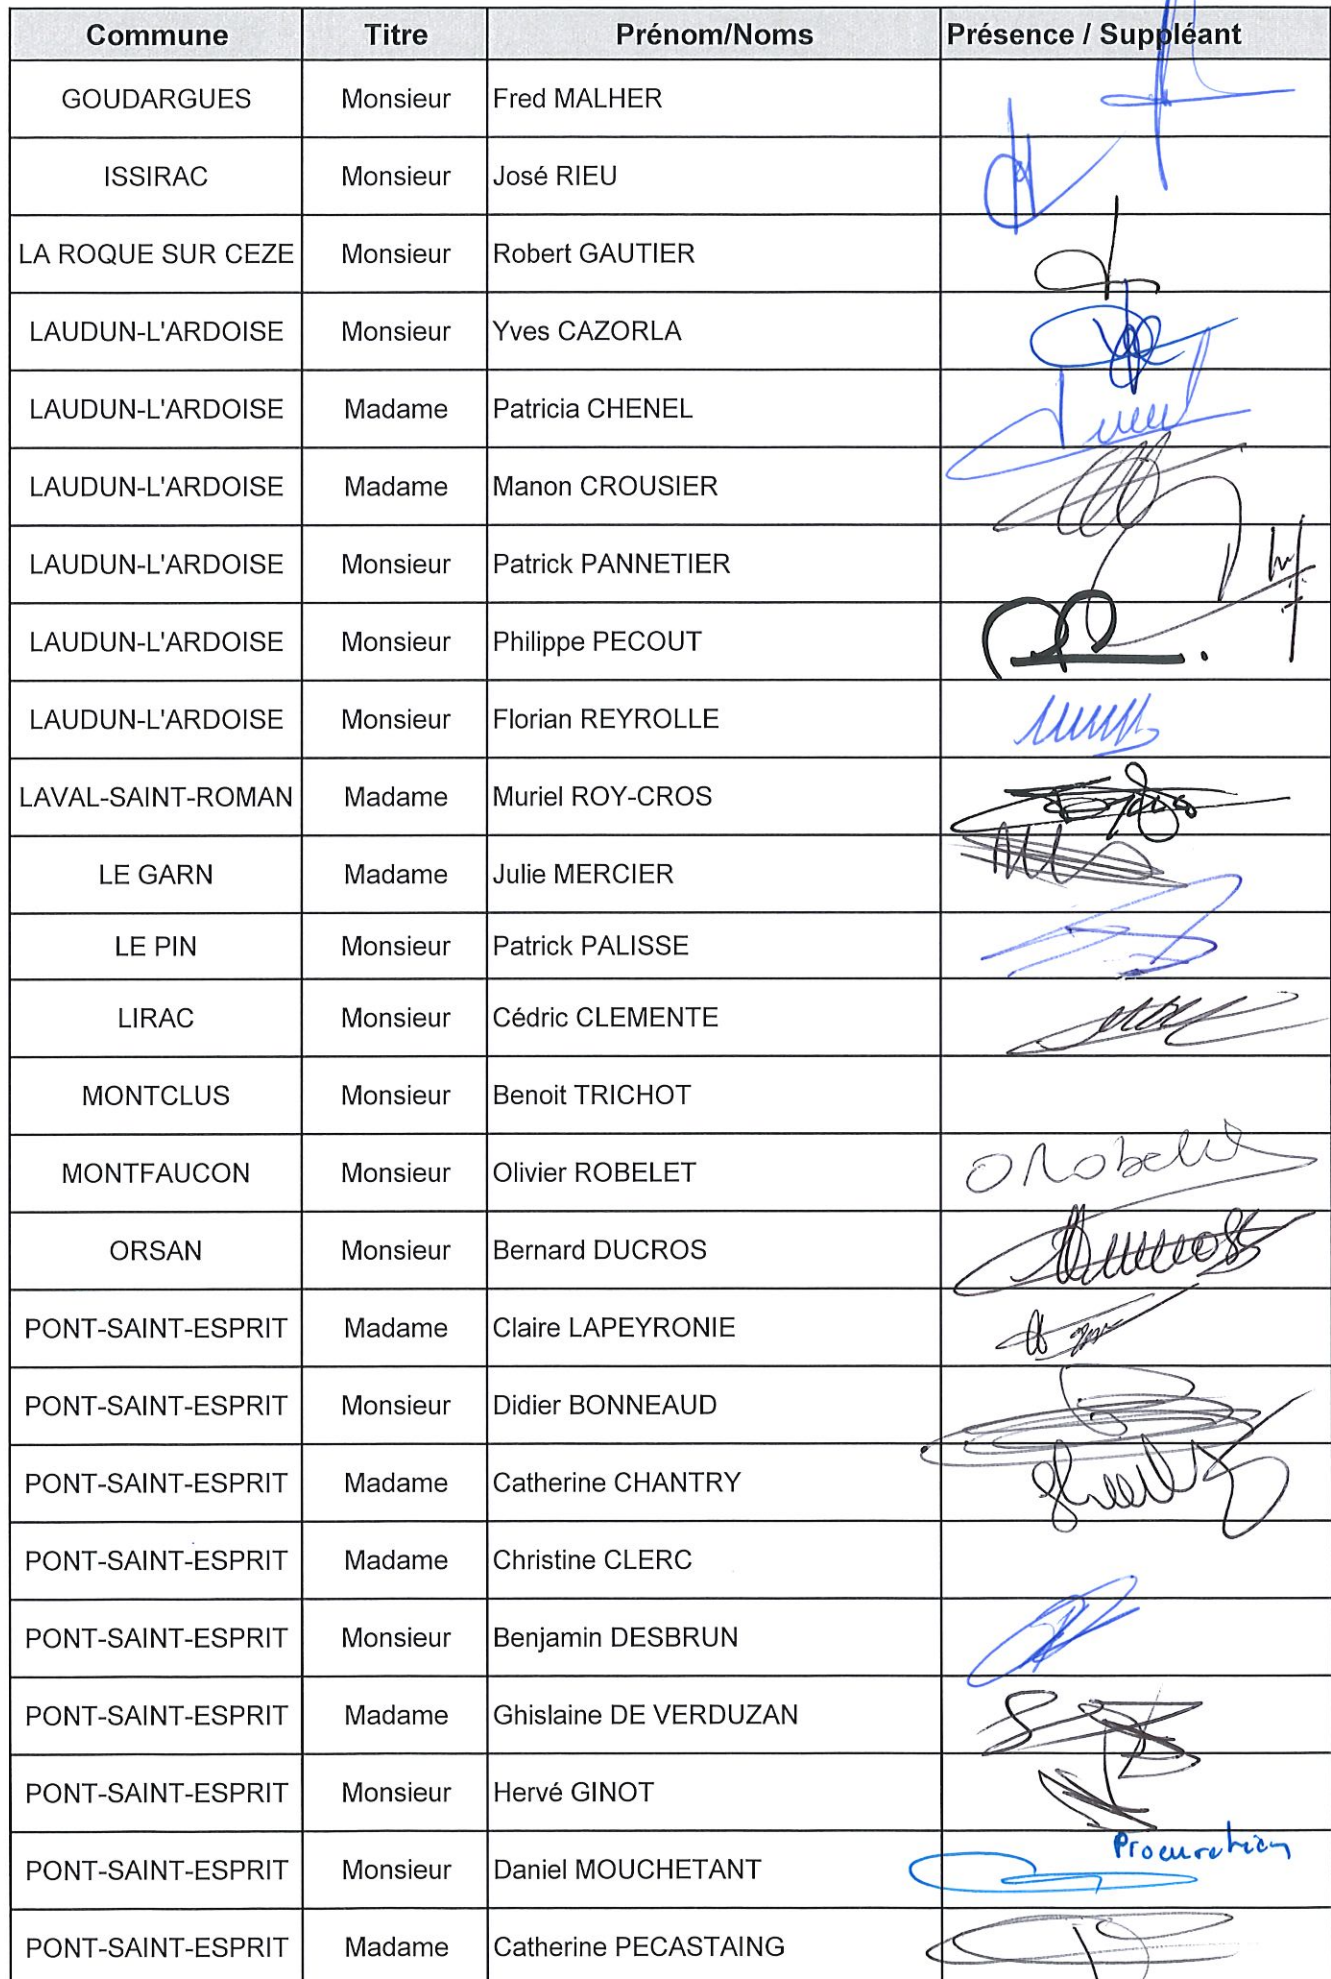 Commune Titre Prénom/Noms Présence / Suppléant
GOUDARGUES Monsieur Fred MALHER
ISSIRAC Monsieur José RIEU
LA ROQUE SUR CEZE Monsieur Robert GAUTIER
LAUDUN-L'ARDOISE Monsieur Yves CAZORLA
LAUDUN-L'ARDOISE Madame Patricia CHENEL
LAUDUN-L'ARDOISE Madame Manon CROUSIER
LAUDUN-L'ARDOISE Monsieur Patrick PANNETIER
LAUDUN-L'ARDOISE Monsieur Philippe PECOUT
LAUDUN-L'ARDOISE Monsieur Florian REYROLLE
LAVAL-SAINT-ROMAN Madame Muriel ROY-CROS
LE GARN Madame Julie MERCIER
LE PIN Monsieur Patrick PALISSE
LIRAC Monsieur Cédric CLEMENTE
MONTCLUS Monsieur Benoit TRICHOT
MONTFAUCON Monsieur Olivier ROBELET ORobelet
ORSAN Monsieur Bernard DUCROS
PONT-SAINT-ESPRIT Madame Claire LAPEYRONIE
PONT-SAINT-ESPRIT Monsieur Didier BONNEAUD
PONT-SAINT-ESPRIT Madame Catherine CHANTRY
PONT-SAINT-ESPRIT Madame Christine CLERC
PONT-SAINT-ESPRIT Monsieur Benjamin DESBRUN
PONT-SAINT-ESPRIT Madame Ghislaine DE VERDUZAN
PONT-SAINT-ESPRIT Monsieur Hervé GINOT
PONT-SAINT-ESPRIT Monsieur Daniel MOUCHETANT Procuration
PONT-SAINT-ESPRIT Madame Catherine PECASTAING